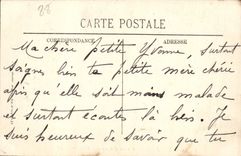 28
CARTE POSTALE
CORRESPONDANCE ADRESSE
Ma chère petite Yvonne, surtout
soignes bien ta petite mère chérie
afin qu'elle soit moins malade
et surtout écoutes là bien. Je
suis heureux de savoir que tu